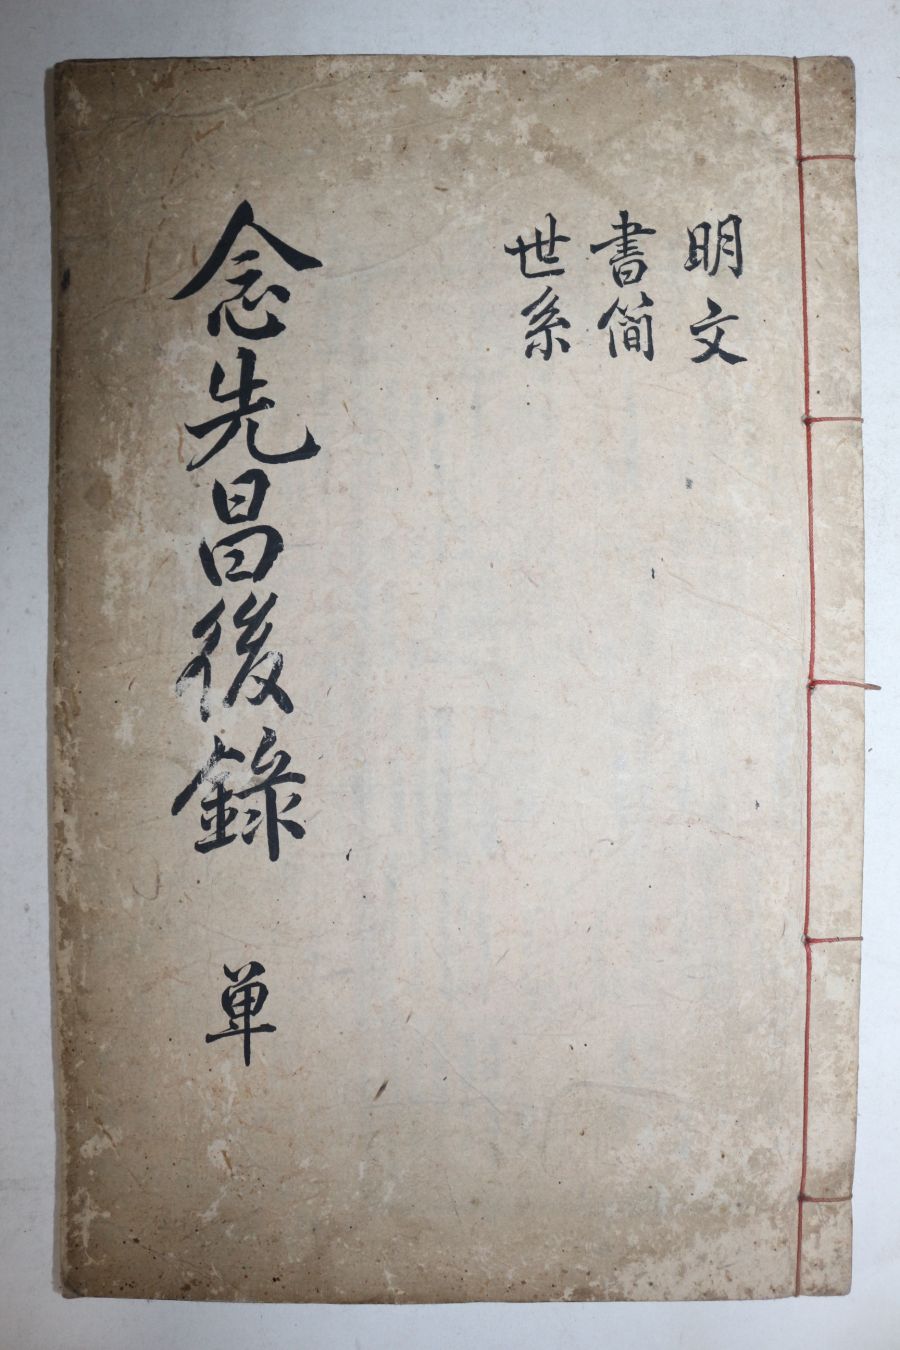 明文
書簡
世系
念先昌後錄 单